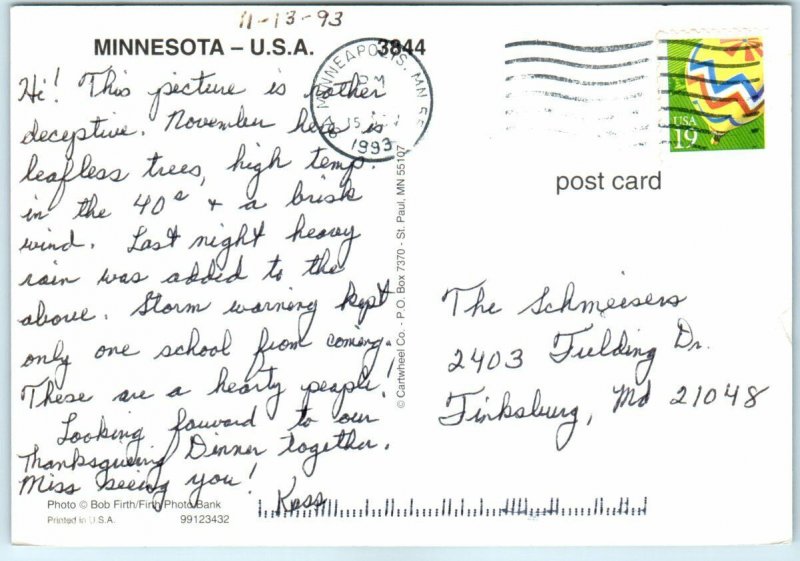 11-13-93
MINNESOTA – U.S.A. 3844
Hi! This picture is rather
deceptive. November here is
leafless trees, high temp.
in the 40s + a brisk
wind. Last night heavy
rain was added to the
above. Storm warning kept
only one school from coming.
These are a hearty people!
Looking forward to our
Thanksgiving Dinner together.
Miss seeing you!
Kass
Photo © Bob Firth/Firth Photo Bank
Printed in U.S.A. 99123432
© Cartwheel Co. - P.O. Box 7370 - St. Paul, MN 55107
MINNEAPOLIS, MN
PM
15
1993
USA
19
post card
The Schmeisers
2403 Fielding Dr.
Finksburg, Md 21048